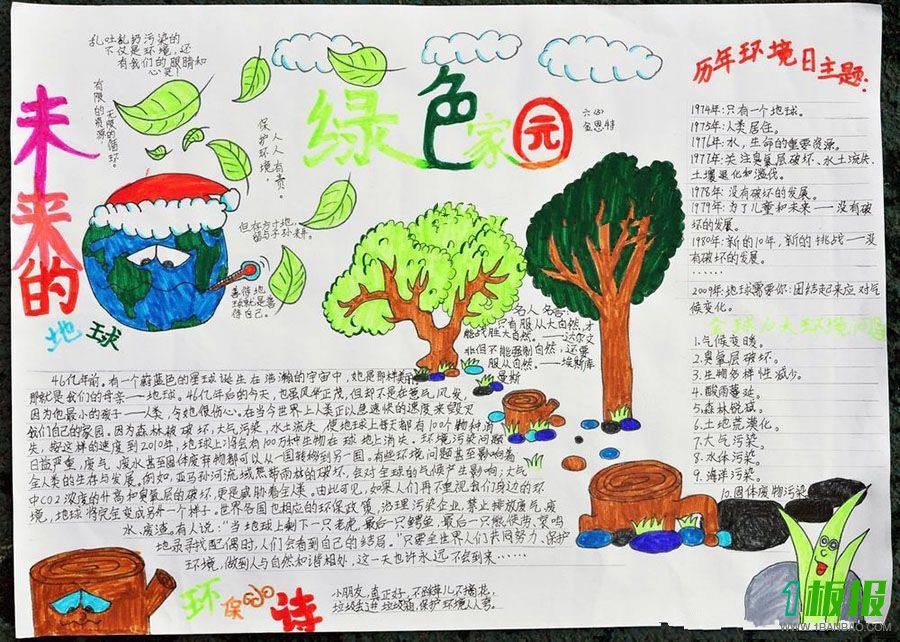 乱吐乱扔污染的
不仅是环境,还
有我们的眼睛和
心灵!
有限的资源
无限的循环。
保护环境
人人有责。
但存方寸地,
留与子孙耕。
善待地
球就是善
待自己。
未来的
地球
绿色家园
六(3)
历年环境日主题:
1974年:只有一个地球。
1975年:人类居住。
1976年:水,生命的重要资源。
1977年:关注臭氧层破坏、水土流失、
土壤退化和滥伐。
1978年:没有破坏的发展。
1979年:为了儿童和未来——没有破
坏的发展。
1980年:新的10年,新的挑战——没
有破坏的发展。
……
2009年:地球需要你:团结起来应对气
候变化。
全球十大环境问题
1.气候变暖。
2.臭氧层破坏。
3.生物多样性减少。
4.酸雨蔓延。
5.森林锐减。
6.土地荒漠化。
7.大气污染。
8.水体污染。
9.海洋污染。
10.固体废物污染
名人名言:
只有服从大自然,才
能战胜大自然。——达尔文
非但不能强制自然,还要
服从自然。——埃斯库
曼斯
46亿年前,有一个蔚蓝色的星球诞生在浩瀚的宇宙中,她是那样美
那就是我们的母亲——地球。46亿年后的今天,她虽风华正茂,但却不是在意气风发,
因为他最小的孩子——人类,令她很伤心。在当今世界上人类正以急速快的速度来毁灭
我们自己的家园。因为森林被破坏,大气污染,水土流失,使地球上每天都有100个物种消
失,按这样的速度到2010年,地球上将会有100万种生物在球地上消失。环境污染问题
日益严重,废气、废水甚至固体废弃物都可以从一国转移到另一国。有些环境问题甚至影响着
全人类的生存与发展。例如,亚马孙河流域热带雨林的破坏,会对全球的气候产生影响;大气
中CO2深度的升高和臭氧层的破坏,更是威胁着全人类。由此可见,如果人们再不重视我们身边的环
境,地球将完全变成另外一个样子。世界各国也相应的环保政策,治理污染企业,禁止排放废气,废
水、废渣。有人说:"当地球上剩下一只老虎,最后一只鳄鱼,最后一只熊使劳,望鸣
地求寻找配偶时,人们会看到自己的结局。"只要全世界人们共同努力、保护
环境,做到人与自然和谐相处,这一天也许永远不会到来……
环保小诗
小朋友,真正好,不踩草儿不摘花,
垃圾丢进垃圾箱,保护环境人人夸。
1板报
WWW.1BANBAO.COM